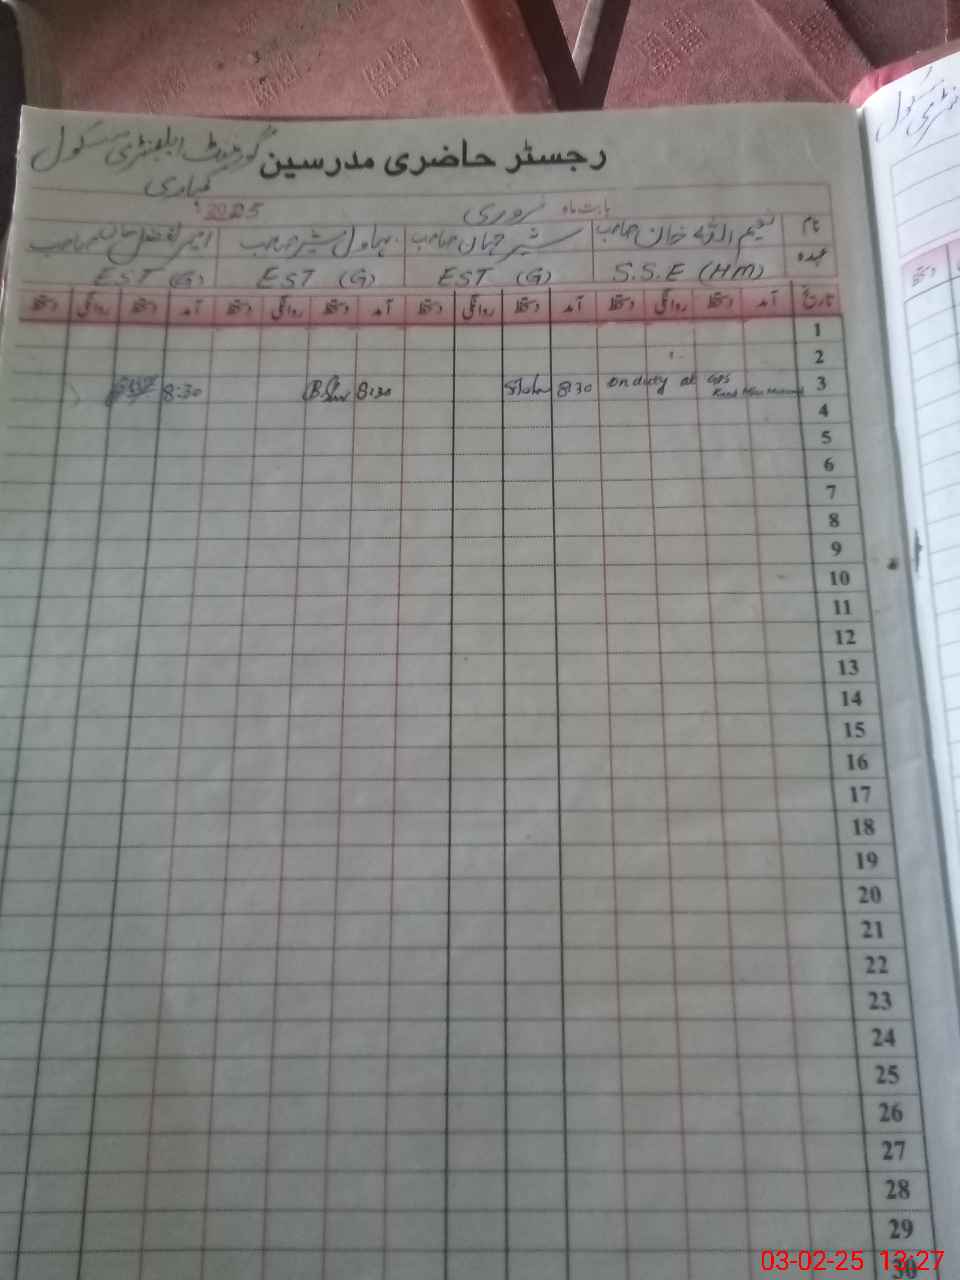 رجسٹر حاضری مدرسین گورنمنٹ ایلیمنٹری سکول
کمہاری
بابت ماہ فروری 2025
نام نعیم اللہ خان صاحب شیر جہاں صاحب بہاول شیر صاحب امیر افضل خان صاحب
عہدہ S.S.E (HM) EST (G) EST (G) EST (G)
تاریخ آمد دستخط روانگی دستخط آمد دستخط روانگی دستخط آمد دستخط روانگی دستخط آمد دستخط روانگی دستخط
1
2
3 on duty at GPS 8:30 8:30 8:30
4
5
6
7
8
9
10
11
12
13
14
15
16
17
18
19
20
21
22
23
24
25
26
27
28
29
30
03-02-25 13:27